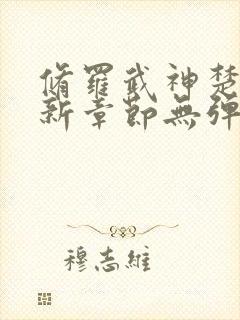 脩羅武神楚
新章節無彈
穆志維